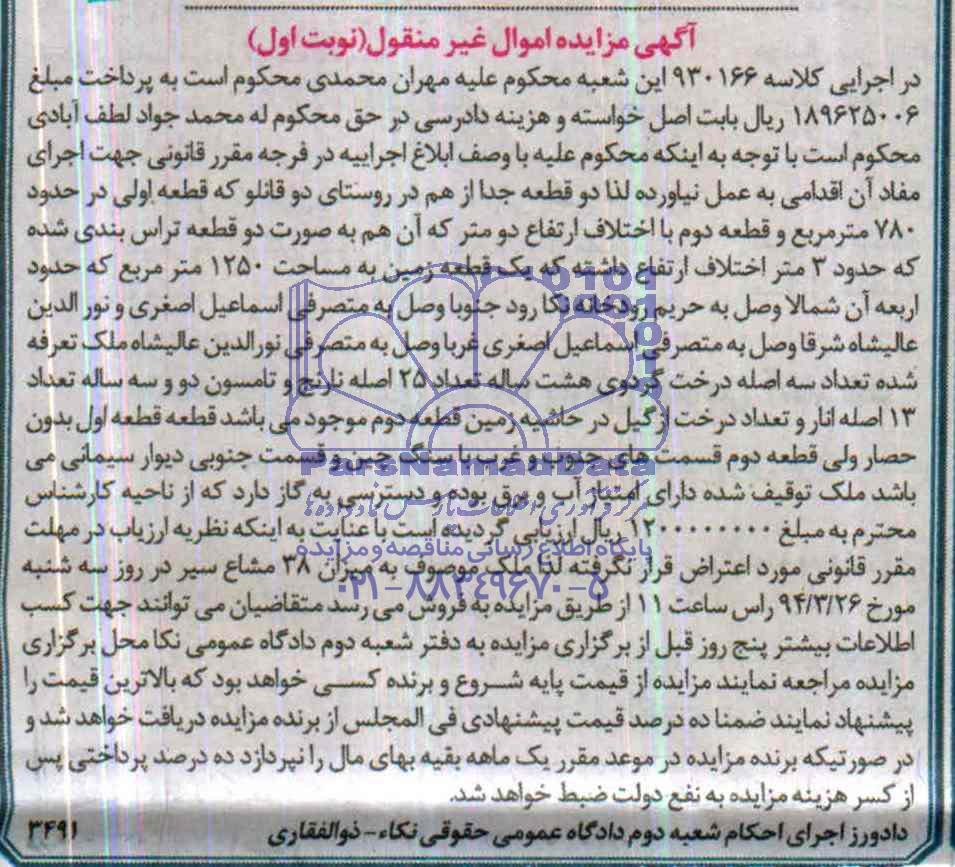 آگهی مزایده اموال غیر منقول(نوبت اول)
در اجرایی کلاسه ۹۳۰۱۶۶ این شعبه محکوم علیه مهران محمدی محکوم است به پرداخت مبلغ
۱۸۹۶۲۵۰۰۶ ریال بابت اصل خواسته و هزینه دادرسی در حق محکوم له محمد جواد لطف آبادی
محکوم است با توجه به اینکه محکوم علیه با وصف ابلاغ اجراییه در فرجه مقرر قانونی جهت اجرای
مفاد آن اقدامی به عمل نیاورده لذا دو قطعه جدا از هم در روستای دو قانلو که قطعه اولی در حدود
۷۸۰ مترمربع و قطعه دوم با اختلاف ارتفاع دو متر که آن هم به صورت دو قطعه تراس بندی شده
که حدود ۳ متر اختلاف ارتفاع داشته که یک قطعه زمین به مساحت ۱۲۵۰ متر مربع که حدود
اربعه آن شمالا وصل به حریم رودخانه نکا رود جنوبا وصل به متصرفی اسماعیل اصغری و نور الدین
عالیشاه شرقا وصل به متصرفی اسماعیل اصغری غربا وصل به متصرفی نورالدین عالیشاه ملک تعرفه
شده تعداد سه اصله درخت گردوی هشت ساله تعداد ۲۵ اصله نارنج و تامسون دو و سه ساله تعداد
۱۳ اصله انار و تعداد درخت ازگیل در حاشیه زمین قطعه دوم موجود می باشد قطعه قطعه اول بدون
حصار ولی قطعه دوم قسمت های جنوب و غرب با سنگ چین و قسمت جنوبی دیوار سیمانی می
باشد ملک توقیف شده دارای امتیاز آب و برق بوده و دسترسی به گاز دارد که از ناحیه کارشناس
محترم به مبلغ ۱۲۰۰۰۰۰۰۰۰ ریال ارزیابی گردیده است با عنایت به اینکه نظریه ارزیاب در مهلت
مقرر قانونی مورد اعتراض قرار نگرفته لذا ملک موصوف به میزان ۳۸ مشاع سیر در روز سه شنبه
مورخ ۹۴/۳/۲۶ راس ساعت ۱۱ از طریق مزایده به فروش می رسد متقاضیان می توانند جهت کسب
اطلاعات بیشتر پنج روز قبل از برگزاری مزایده به دفتر شعبه دوم دادگاه عمومی نکا محل برگزاری
مزایده مراجعه نمایند مزایده از قیمت پایه شروع و برنده کسی خواهد بود که بالاترین قیمت را
پیشنهاد نمایند ضمنا ده درصد قیمت پیشنهادی فی المجلس از برنده مزایده دریافت خواهد شد و
در صورتیکه برنده مزایده در موعد مقرر یک ماهه بقیه بهای مال را نپردازد ده درصد پرداختی پس
از کسر هزینه مزایده به نفع دولت ضبط خواهد شد.
دادورز اجرای احکام شعبه دوم دادگاه عمومی حقوقی نکاء - ذوالفقاری
۳۴۹۱
ParsNamadData
پایگاه اطلاع رسانی مناقصه و مزایده
۰۲۱-۸۸۳۴۹۶۷۰-۵